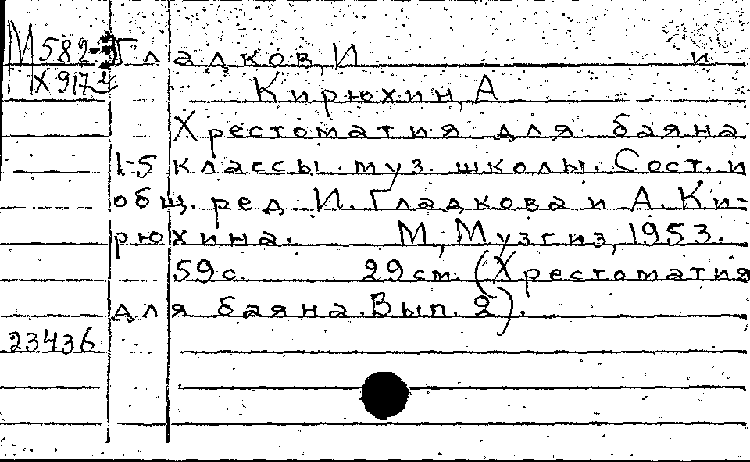 М582-2 Гладков, И и
Х917 Кирюхин, А
Хрестоматия для баяна
1-5 классы муз. школы. Сост. и
общ. ред. И. Гладкова и А. Ки-
рюхина. М., Музгиз, 1953.
59 с. 29 см. (Хрестоматия
для баяна. Вып. 2).
23436